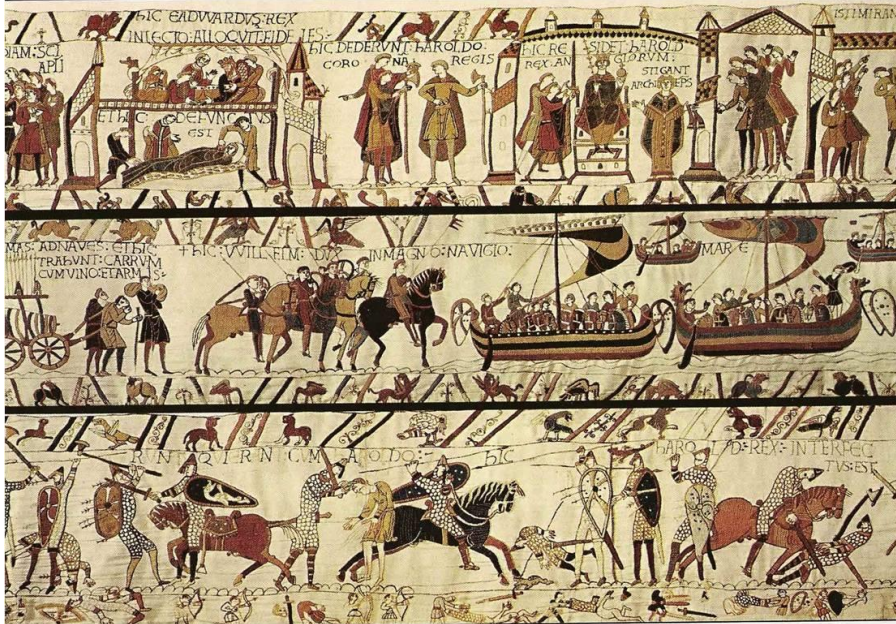 HIC EADVVARDVS: REX
IN LECTO: ALLOCVIT: FIDELES:
IAM: SCI
APLI
ET HIC: DEFVNCTVS
EST
HIC DEDERVNT: HAROLDO:
CORONA REGIS
HIC RESIDET: HAROLD
REX: ANGLORVM:
STIGANT
ARCHIEPS
ISTI MIRAN
MAS: AD NAVES: ET HIC
TRAHVNT: CARRVM
CVM VINO: ET ARMIS:
† HIC: VVILLELM: DVX IN MAGNO: NAVIGIO:
MARE
RVNT QVI ERANT CVM HAROLDO:
HIC HAROLD: REX: INTERFEC
TVS: EST